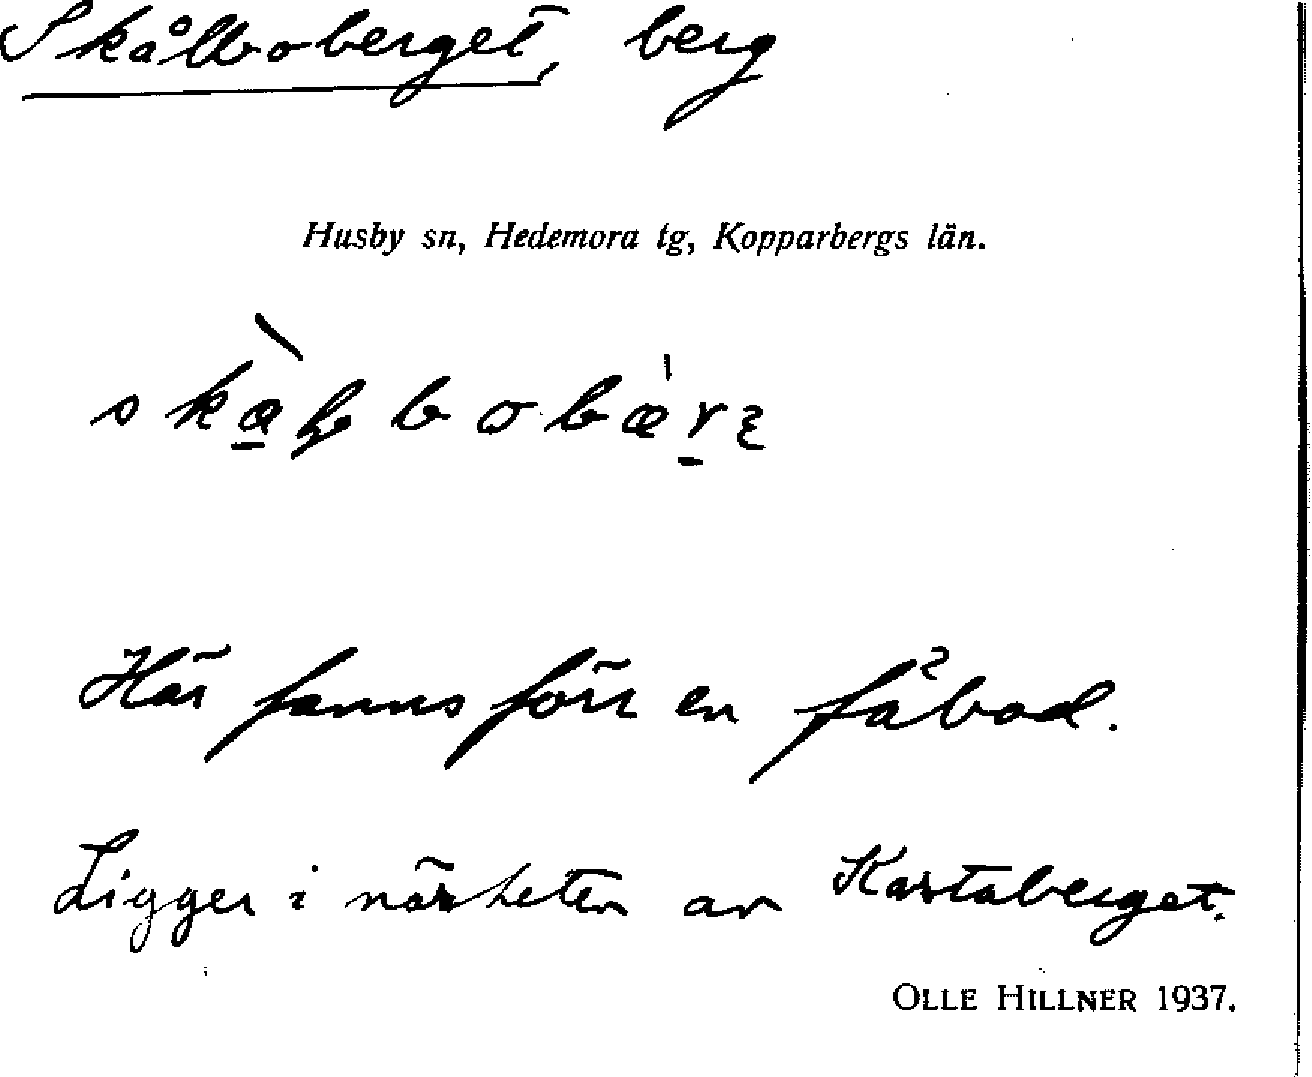 Skålboberget, berg
Husby sn, Hedemora tg, Kopparbergs län.
Här fanns förr en fåbod.
Ligger i närheten av Kastaberget.
OLLE HILLNER 1937.